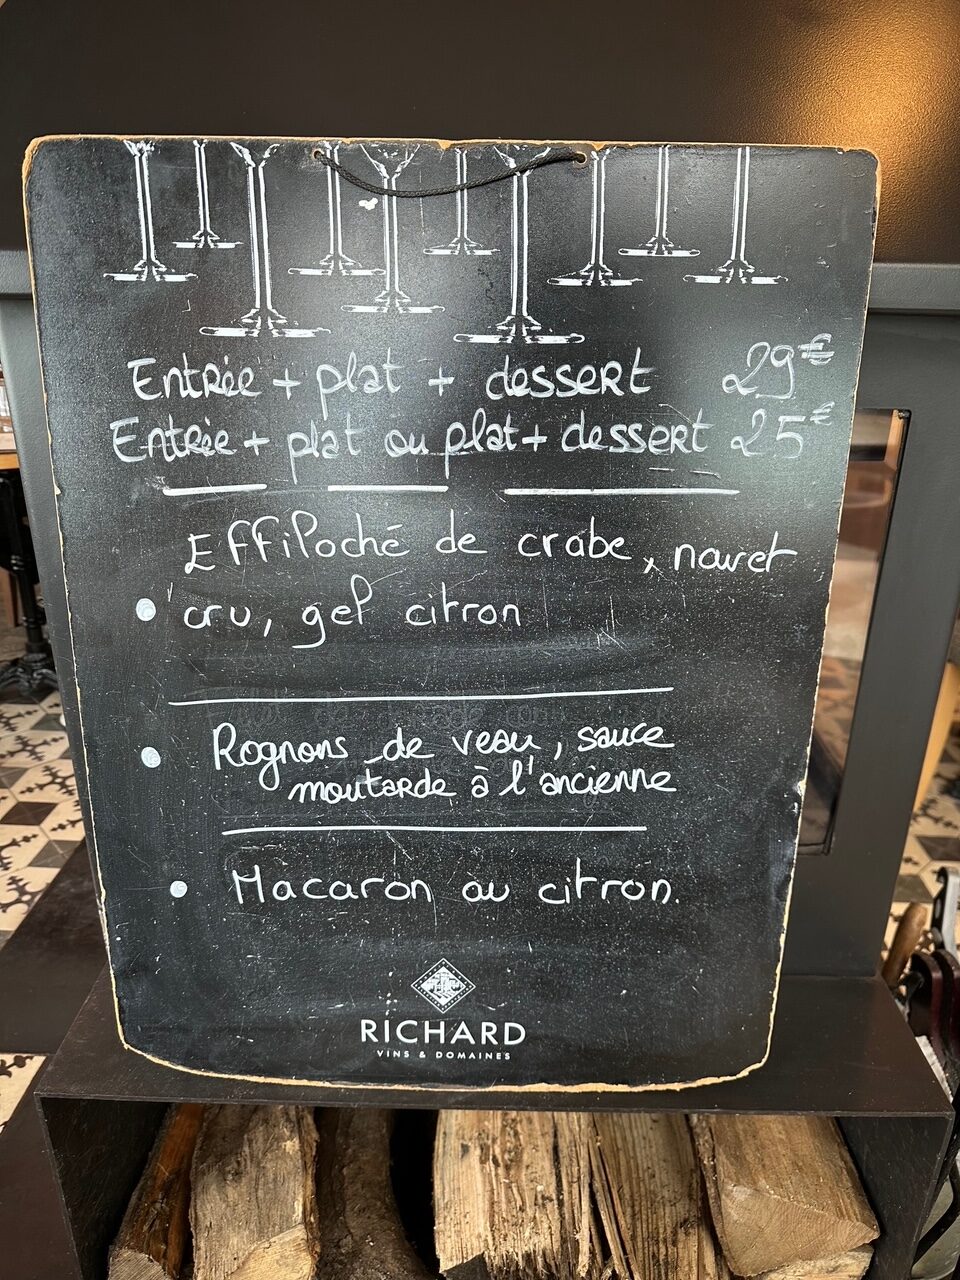 Entrée + plat + dessert 29€
Entrée + plat ou plat + dessert 25€
Effiloché de crabe, navet
cru, gel citron
Rognons de veau, sauce
moutarde à l'ancienne
Macaron au citron.
RICHARD
VINS & DOMAINES